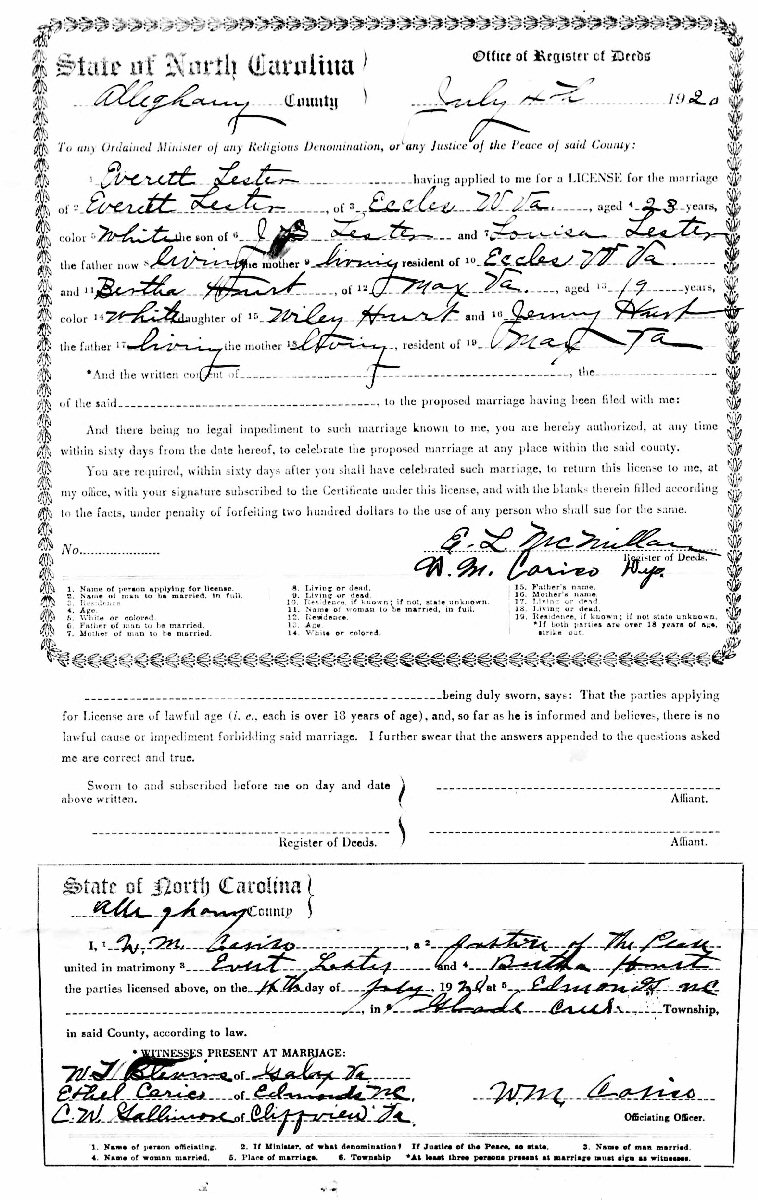 State of North Carolina
Office of Register of Deeds
Alleghany County
July 4th 1920
To any Ordained Minister of any Religious Denomination, or any Justice of the Peace of said County:
1 Everett Lester having applied to me for a LICENSE for the marriage
of 2 Everett Lester of 3 Eccles W Va. , aged 4 23 years,
color 5 White the son of 6 J Lester and 7 Louisa Lester
the father now 8 living the mother 9 living resident of 10 Eccles W Va.
and 11 Bertha Hurst , of 12 Max Va. , aged 13 19 years,
color 14 White daughter of 15 Wiley Hurst and 16 Jenny Hurst
the father 17 living the mother 18 living , resident of 19 Max Va
*And the written consent of , the
of the said , to the proposed marriage having been filed with me:
And there being no legal impediment to such marriage known to me, you are hereby authorized, at any time
within sixty days from the date hereof, to celebrate the proposed marriage at any place within the said county.
You are required, within sixty days after you shall have celebrated such marriage, to return this license to me, at
my office, with your signature subscribed to the Certificate under this license, and with the blanks therein filled according
to the facts, under penalty of forfeiting two hundred dollars to the use of any person who shall sue for the same.
E. L McMillan
No. Register of Deeds.
W. M. Carico Dep.
1. Name of person applying for license.
2. Name of man to be married, in full.
3. Residence.
4. Age.
5. White or colored.
6. Father of man to be married.
7. Mother of man to be married.
8. Living or dead.
9. Living or dead.
10. Residence, if known; if not, state unknown.
11. Name of woman to be married, in full.
12. Residence.
13. Age.
14. White or colored.
15. Father's name.
16. Mother's name.
17. Living or dead.
18. Living or dead.
19. Residence, if known; if not state unknown.
*If both parties are over 18 years of age,
strike out.
being duly sworn, says: That the parties applying
for License are of lawful age (i. e., each is over 18 years of age), and, so far as he is informed and believes, there is no
lawful cause or impediment forbidding said marriage. I further swear that the answers appended to the questions asked
me are correct and true.
Sworn to and subscribed before me on day and date
above written.
Affiant.
Register of Deeds. Affiant.
State of North Carolina
Alleghany County
I, 1 W. M. Carico , a 2 Justice of the Peace
united in matrimony 3 Evert Lester and 4 Bertha Hurst
the parties licensed above, on the 4th day of July , 1920 at 5 Edmonds NC
, in 6 Glade Creek Township,
in said County, according to law.
* WITNESSES PRESENT AT MARRIAGE:
W T Blevins of Galax Va
Ethel Carico of Edmonds NC.
C. W. Gallimore of Cliffview Va
W. M. Carico
Officiating Officer.
1. Name of person officiating. 2. If Minister, of what denomination? If Justice of the Peace, so state. 3. Name of man married.
4. Name of woman married. 5. Place of marriage. 6. Township *At least three persons present at marriage must sign as witnesses.